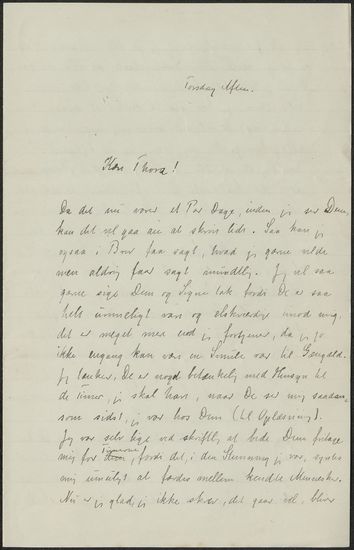 Torsdag Aften.
Kære Thora!
Da det nu varer et Par Dage, inden jeg ser Dem,
kan det vel gaa an at skrive lidt. Saa kan jeg
ogsaa i Brev faa sagt, hvad jeg gerne vilde
men aldrig faar sagt mundtlig. Jeg vil saa
gerne sige Dem og Signe tak fordi De er saa
helt umenneskeligt rare og elskværdige imod mig,
det er meget mer end jeg fortjener, da jeg jo
ikke engang kan være en Smule rar til Gengæld.
Jeg tænker, De er nogd betænkelig med Hensyn til
de Timer, jeg skal have, naar De ser mig saadan,
som sidst, jeg var hos Dem (til Oplæsning).
Jeg var selv lige ved skriftlig at bede Dem fritage
mig for Timerne, fordi det, i den Stemning jeg var, syntes
mig umuligt at færdes mellem kendte Mennesker.
Nu er jeg glad, jeg ikke skrev, det gaar vel, bliver